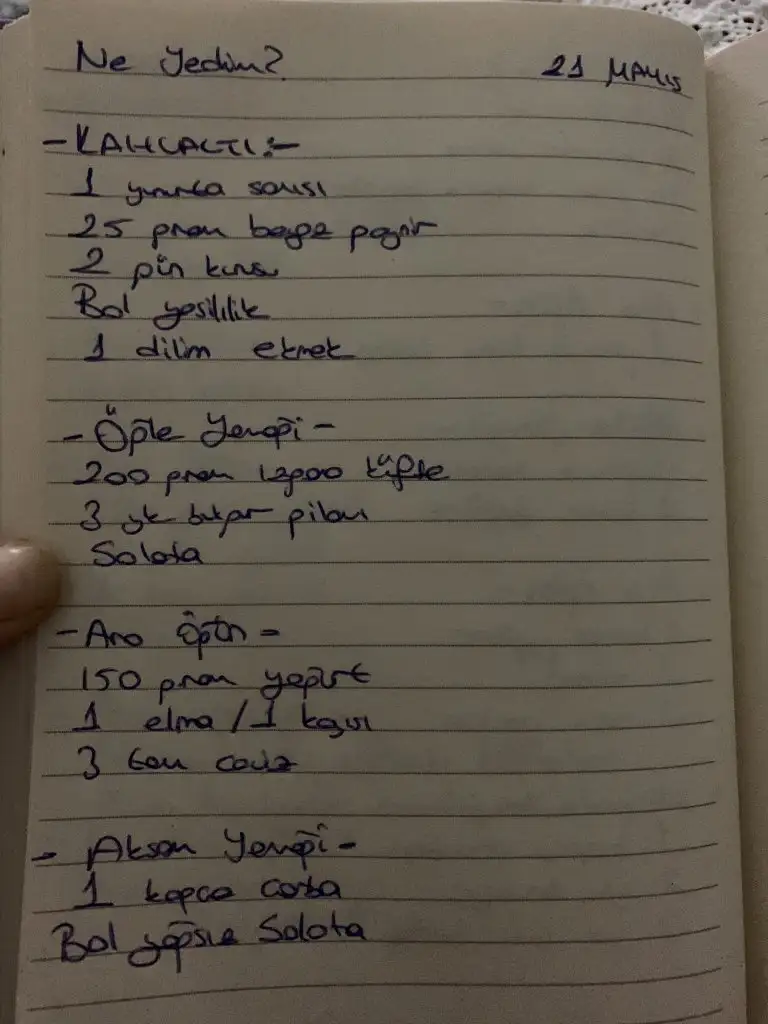 Ne Yedim? 21 MAYIS
- KAHVALTI :-
1 yumurta sarısı
25 gram beyaz peynir
2 gün kurusu
Bol yeşillik
1 dilim ekmek
- Öğle Yemeği -
200 gram ızgara köfte
3 yk bulgur pilavı
Salata
- Ara Öğün -
150 gram yoğurt
1 elma / 1 kayısı
3 tam ceviz
- Akşam Yemeği -
1 kepçe çorba
Bol yağsız Salata